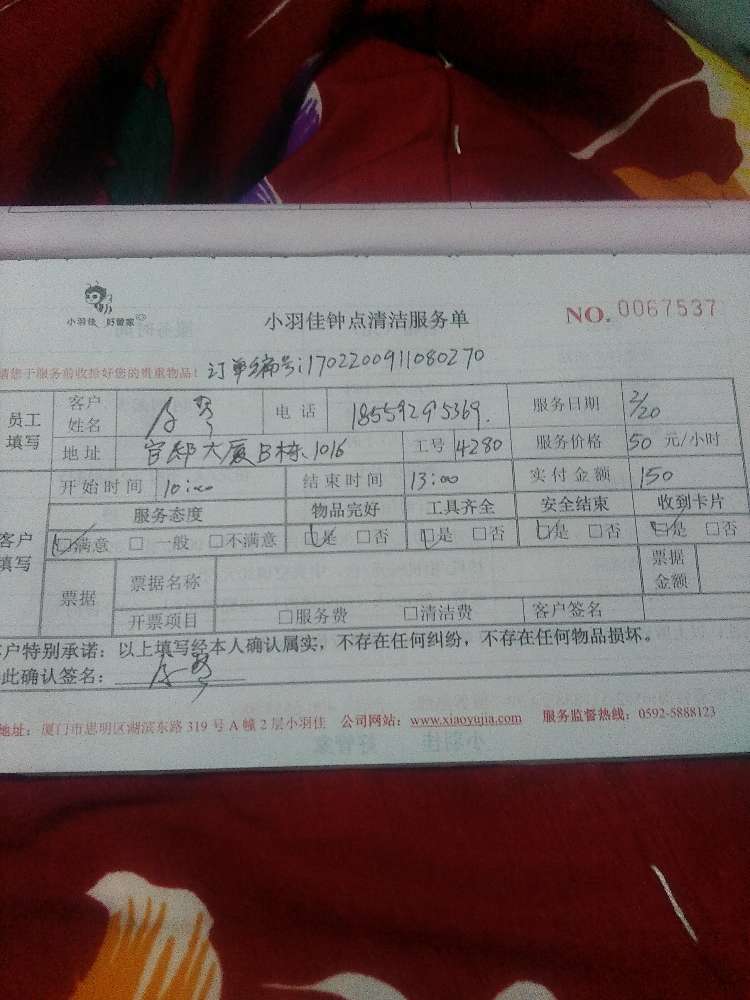 小羽佳 好管家
小羽佳钟点清洁服务单
NO. 0067537
请您于服务前收拾好您的贵重物品！ 订单编号:1702200911080270
员工填写 客户姓名 电话 18559295369. 服务日期 2/20
地址 官邸大厦B栋、1016 工号 4280 服务价格 50 元/小时
开始时间 10:00 结束时间 13:00 实付金额 150
客户填写 服务态度 物品完好 工具齐全 安全结束 收到卡片
☑满意 □一般 □不满意 ☑是 □否 ☑是 □否 ☑是 □否 ☑是 □否
票据 票据名称 票据金额
开票项目 □服务费 □清洁费 客户签名
客户特别承诺：以上填写经本人确认属实，不存在任何纠纷，不存在任何物品损坏。
此确认签名：
地址：厦门市思明区湖滨东路 319 号 A 幢 2 层小羽佳 公司网站：www.xiaoyujia.com 服务监督热线：0592-5888123